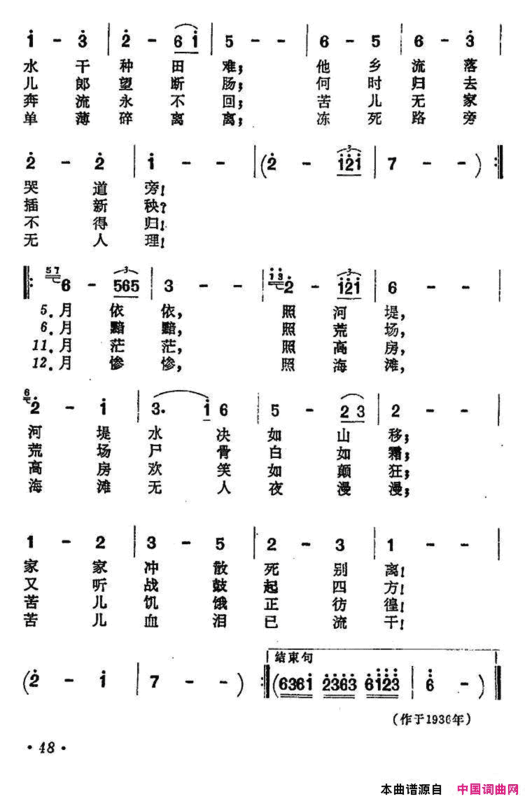 1̇ - 3̇ | 2̇ - 6 1̇ | 5 - - | 6 - 5 | 6 - 3̇
水 干 种 望 田 难；他 乡 流 落
儿 郎 望 断 肠；何 时 归 去
奔 流 永 不 回；苦 儿 无 家
单 薄 碎 离 离；冻 死 路 旁
2̇ - 2̇ | 1̇ - - | (2̇ - 1̇2̇1̇ | 7 - -) :‖
哭 道 旁！
插 新 秧？
不 得 归！
无 人 理！
‖: 6 - 565 | 3 - - | 2̇ - 1̇2̇1̇ | 6 - -
5．月 依 依， 照 河 堤，
6．月 黯 黯， 照 荒 场，
11．月 茫 茫， 照 高 房，
12．月 惨 惨， 照 海 滩，
2̇ - 1̇ | 3̇· 1̇ 6 | 5 - 2 3 | 2 - -
河 堤 水 决 如 山 移；
荒 场 尸 骨 白 如 霜；
高 房 欢 笑 如 颠 狂；
海 滩 无 人 夜 漫 漫；
1 - 2 | 3 - 5 | 2 - 3 | 1 - -
家 家 冲 散 死 别 离！
又 听 战 鼓 起 四 方！
苦 儿 饥 饿 正 彷 徨！
苦 儿 血 泪 已 流 干！
结束句
(2̇ - 1̇ | 7 - -) :‖ (6361̇ 2̇3̇6̇3̇ 6̇1̇2̇3̇ | 6̇ -)
(作于1936年)
·48·
本曲谱源自 中国词曲网